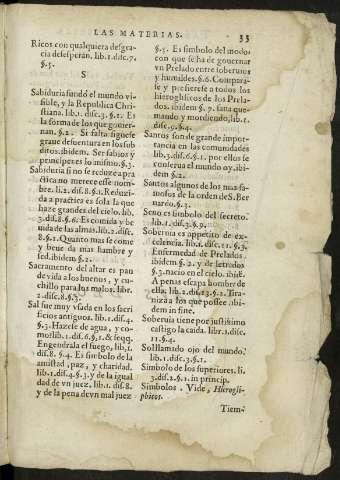 LAS MATERIAS. 33
Ricos con qualquiera desgra-
cia desesperan. lib. 1. disc. 7.
§. 5.
S
Sabiduria fundó el mundo vi-
sible, y la Republica Chri-
stiana. lib. 1. disc. 3. §. 1. Es
la forma de los que gouer-
nan. §. 2. Si falta sucede
graue desuentura en los sub
ditos. ibidem. Ser sabios y
principes es lo mismo. §. 3.
Sabiduria si no se reduze a pra
ctica no merece esse nom-
bre. li. 2. dis. 8. §. 1. Reduzi-
da a practica es sola la que
haze grandes del cielo. lib.
3. dis. 8. §. 6. Es comida y be
uida de las almas. lib. 2. disc.
8. §. 1. Quanto mas se come
y beue da mas hambre y
sed. ibidem §. 2.
Sacramento del altar es pan
de vida a los buenos, y cu-
chillo para los malos. libr.
2. disc. 8. §. 3.
Sal fue muy vsada en los sacri
ficios antiguos. lib. 1. dis. 4.
§. 3. Hazese de agua, y co-
mo. lib. 1. dis. 6. §. 1. & seqq.
Engendrala el fuego, lib. 1.
dis. 8. §. 4. Es simbolo de la
amistad, paz, y charidad.
lib. 1. dis. 4. §. 3. y de la igual
dad de vn juez. lib. 1. dis. 8.
y de la pena de vn mal juez
§. 5. Es simbolo del modo
con que se ha de gouernar
vn Prelado entre soberuios
y humildes. §. 6. Compara-
se y prefierese a todos los
hieroglificos de los Prela-
dos. ibidem §. 7. sana que-
mando y mordiendo, lib. 1.
disc. 9. §. 4.
Santos son de grande impor-
tancia en las comunidades
lib. 3. dis. 6. §. 1. por ellos se
conserua el mundo oy. ibi-
dem §. 2.
Santos algunos de los mas fa-
mosos de la orden de S. Ber
nardo. §. 3.
Seno es simbolo del secreto.
lib. 1. dis. 9. §. 2.
Soberuia es appetito de ex-
celencia. lib. 1. disc. 11. §. 3.
Enfermedad de Prelados.
ibidem. §. 2. y de letrados
§. 3. nacio en el cielo. ibid.
A penas escapa hombre de
ella. lib. 2. dis. 13. §. 2. Tira-
niza a los que possee. ibi-
dem in fine.
Soberuia tiene por justissimo
castigo la caida. libr. 1. disc.
11. §. 4.
Sol llamado ojo del mundo.
lib. 1. disc. 3. §. 1.
Simbolo de los superiores. li.
3. dis. 2. §. 1. in princip.
Simbolos. Vide, Hierogli-
phicos.
Tiem-